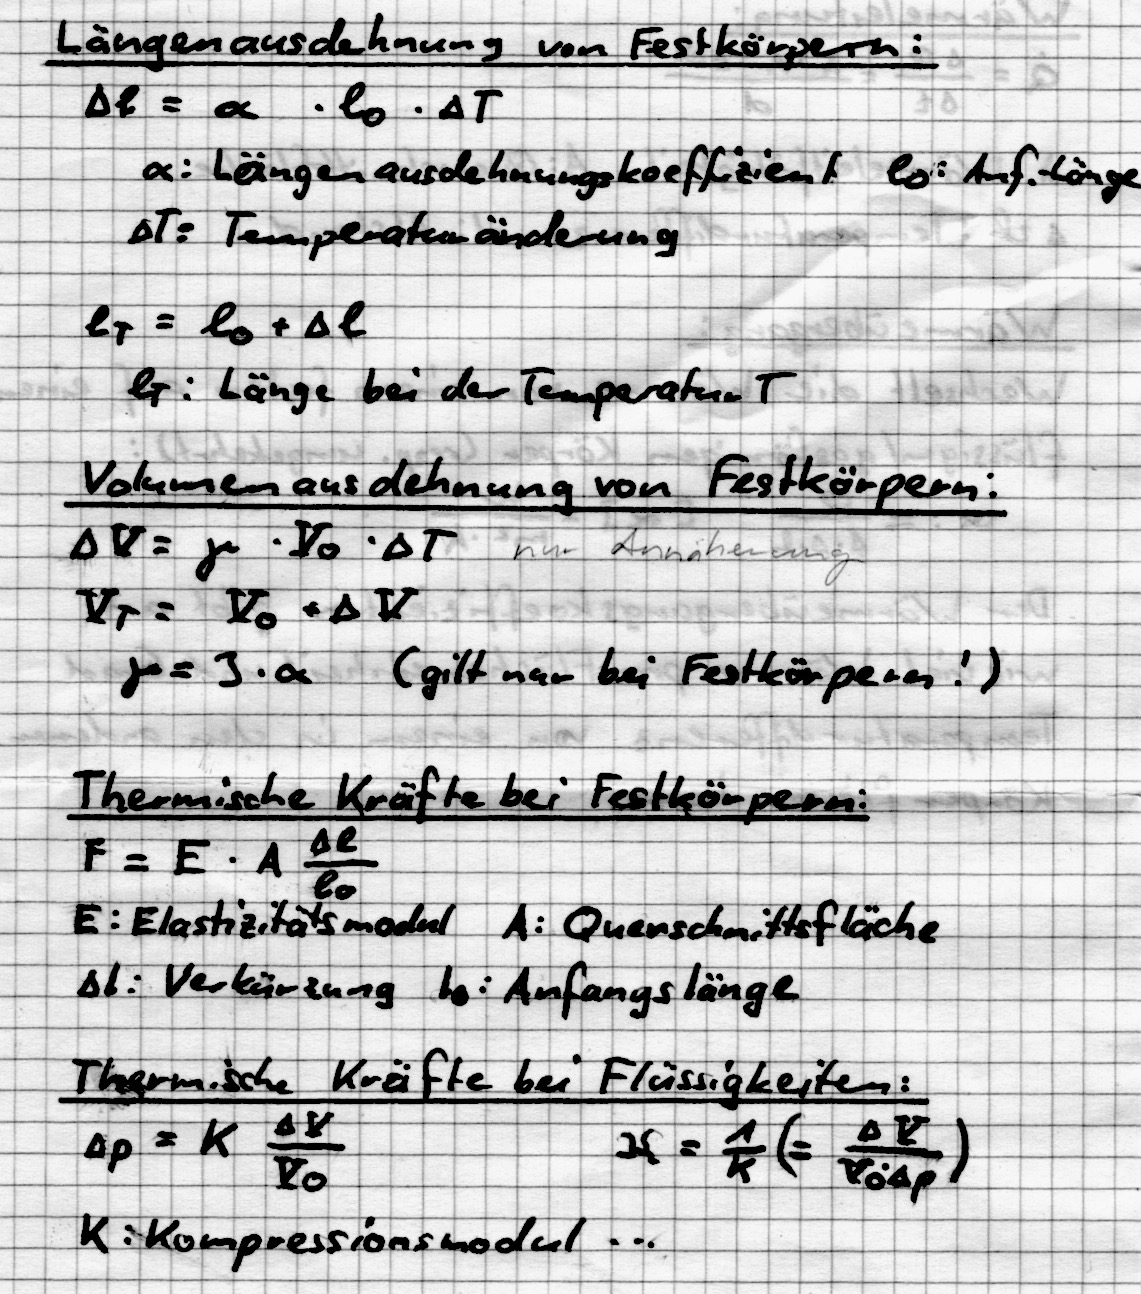 Längenausdehnung von Festkörpern:
Δl = α · l₀ · ΔT
α: Längenausdehnungskoeffizient l₀: Anf.-Länge
ΔT: Temperaturänderung
l_T = l₀ + Δl
l_T: Länge bei der Temperatur T
Volumenausdehnung von Festkörpern:
ΔV = γ · V₀ · ΔT nur Annäherung
V_T = V₀ + ΔV
γ = 3 · α (gilt nur bei Festkörpern!)
Thermische Kräfte bei Festkörpern:
F = E · A Δl/l₀
E: Elastizitätsmodul A: Querschnittsfläche
Δl: Verkürzung l₀: Anfangslänge
Thermische Kräfte bei Flüssigkeiten:
Δp = K ΔV/V₀ ϰ = 1/K (= ΔV/V₀·Δp)
K: Kompressionsmodul ...